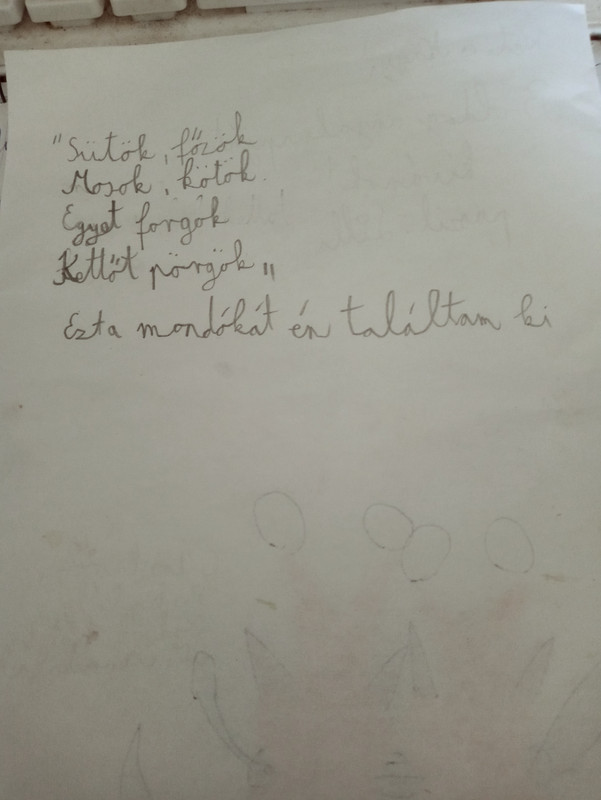 "Sütök, főzök
Mosok, kötök.
Egyet forgók
Kettőt pörgök"
Ezta mondókát én találtam ki